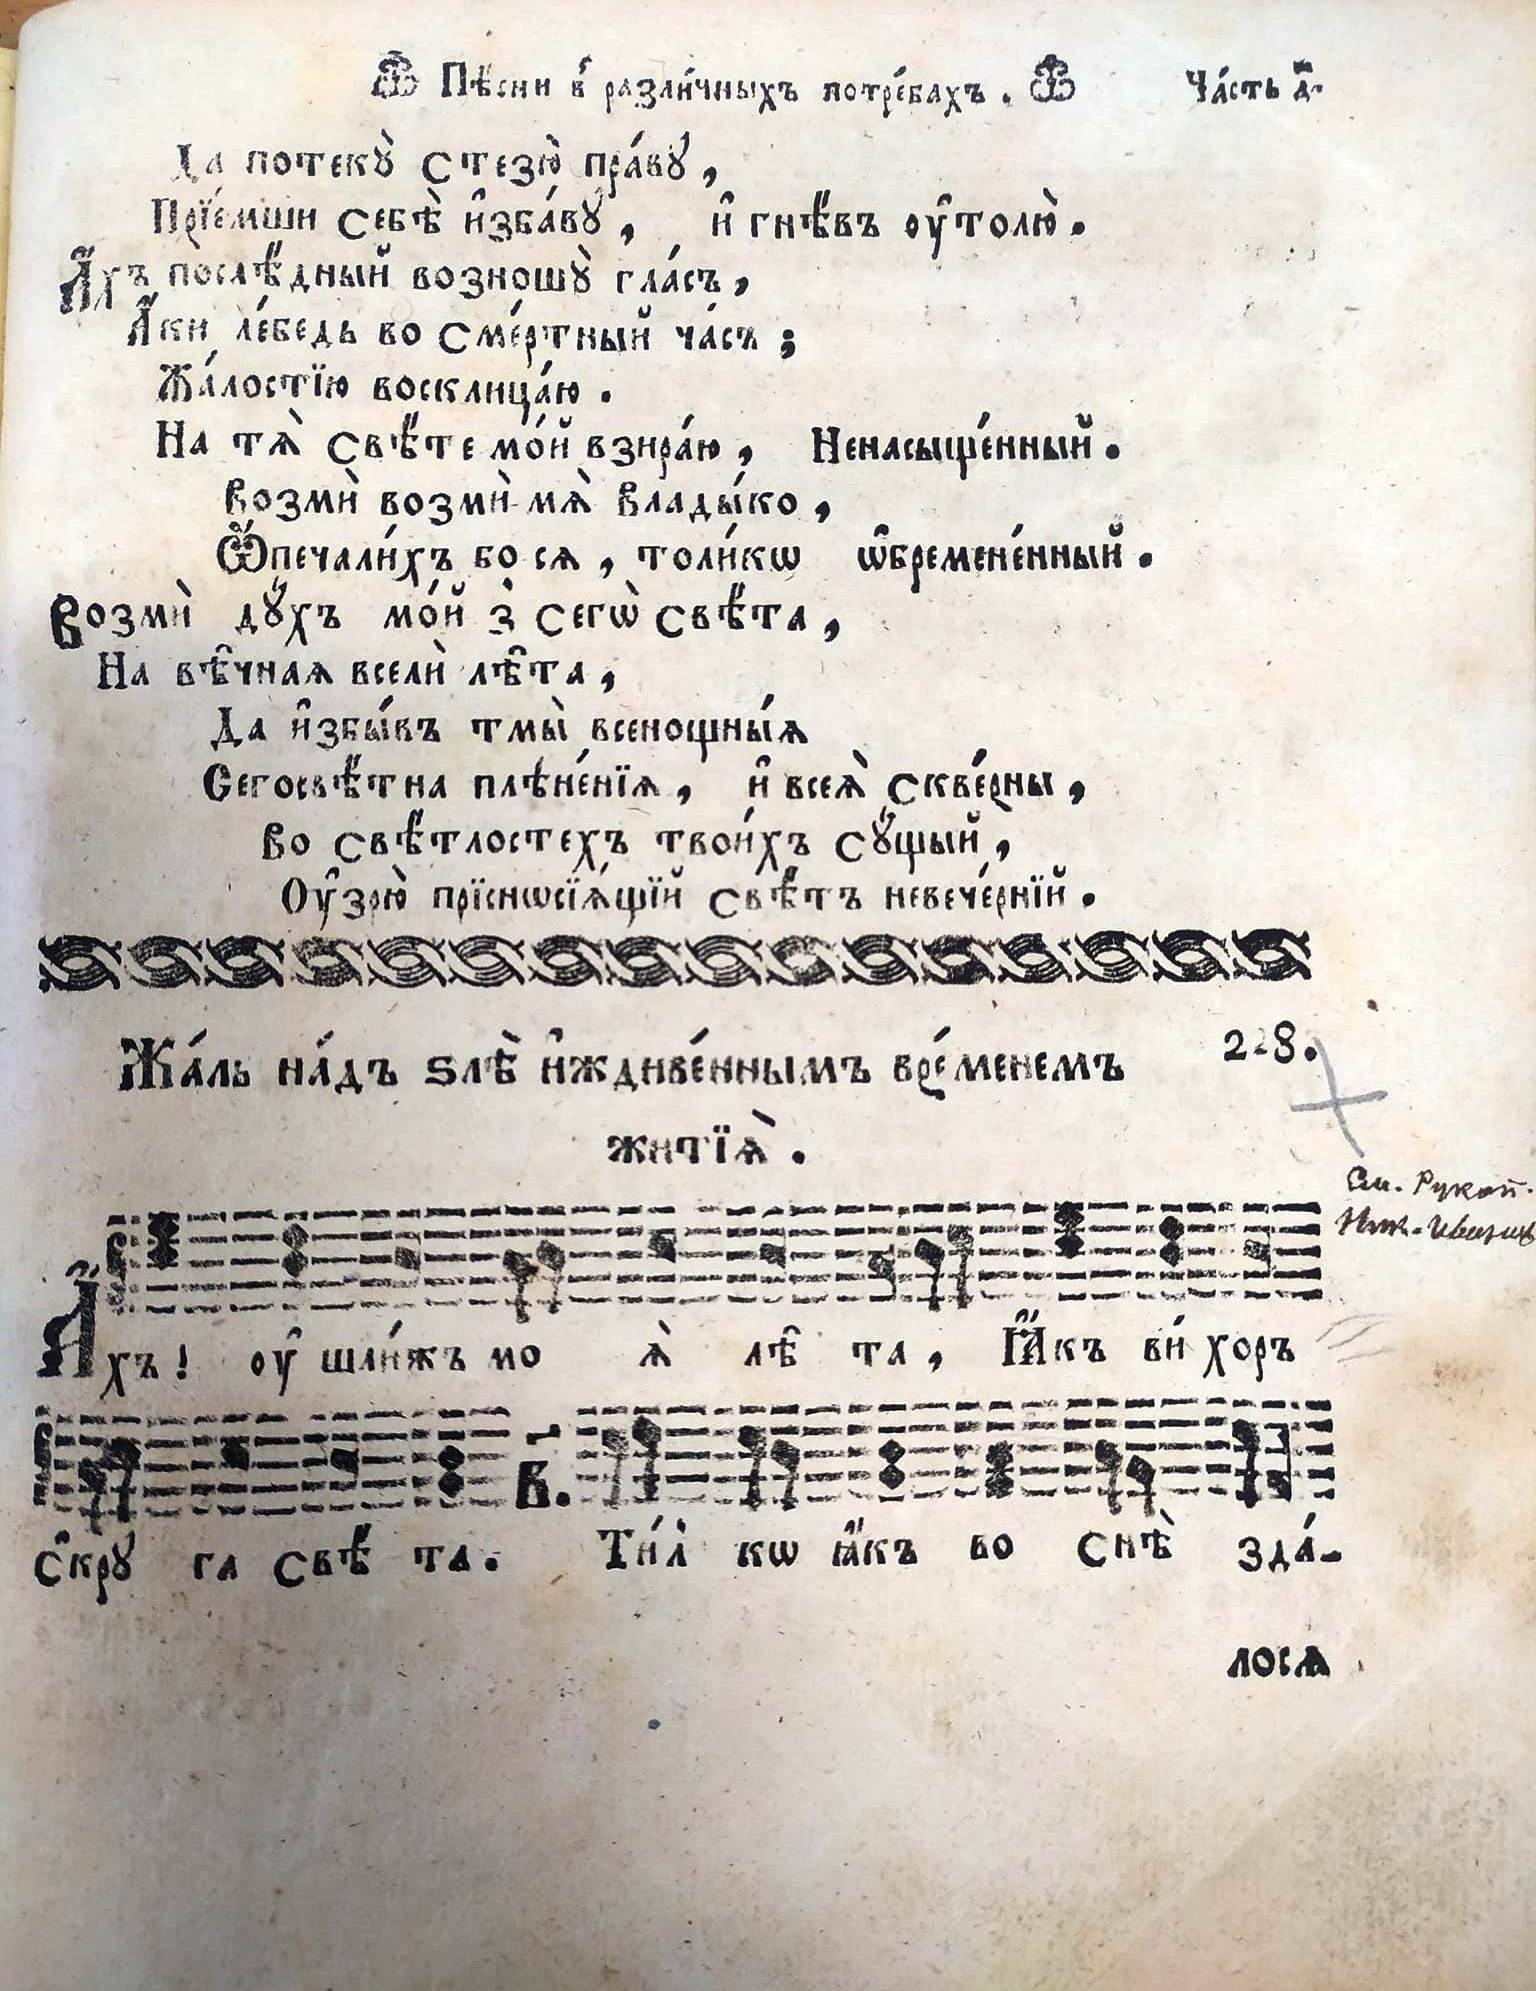 Пѣ́сни в̾ разли́чныхъ потре́бахъ. Ча́сть д҃.
Да потекꙋ̀ стезю̀ пра́вꙋ,
Прїе́мши себѣ̀ и҆зба́вꙋ, и҆ гнѣ́въ оу҆толю̀.
А҆́хъ послѣ́дный возношꙋ̀ гла́съ,
А҆́ки ле́бедь во сме́ртный ча́съ;
Жа́лостїю восклица́ю.
На тѧ̀ свѣ́те мо́й взира́ю, Ненасыще́нный.
Возмѝ возмѝ мѧ̀ влады́ко,
Ѿпечали́хъ бо сѧ, толи́кѡ ѡ҆бремене́нный.
Возмѝ дꙋ́хъ мо́й з̾ сегѡ̀ свѣ́та,
На вѣ̑чнаѧ вселѝ лѣ̑та,
Да и҆збы́въ тмы̀ всенощны́ѧ
Сегосвѣ́тна плѣне́нїѧ, и҆ всеѧ̀ скве́рны,
Во свѣ́тлостехъ твои́хъ сꙋ́щый,
Оу҆зрю̀ прїснѡсїѧ́щїй свѣ́тъ невече́рнїй.
Жа́ль на́дъ ѕлѣ̀ и҆ждиве́ннымъ вре́менемъ 228.
житїѧ̀.
См. Рукоп.
А҆́хъ! оу҆ шли́жъ мо ѧ̀ лѣ̑ та, Ꙗ҆́къ ви́ хоръ
В.
с̾крꙋ га свѣ́ та. Ти́л̾ кѡ ꙗ҆́къ во снѣ̀ зда́-
лосѧ